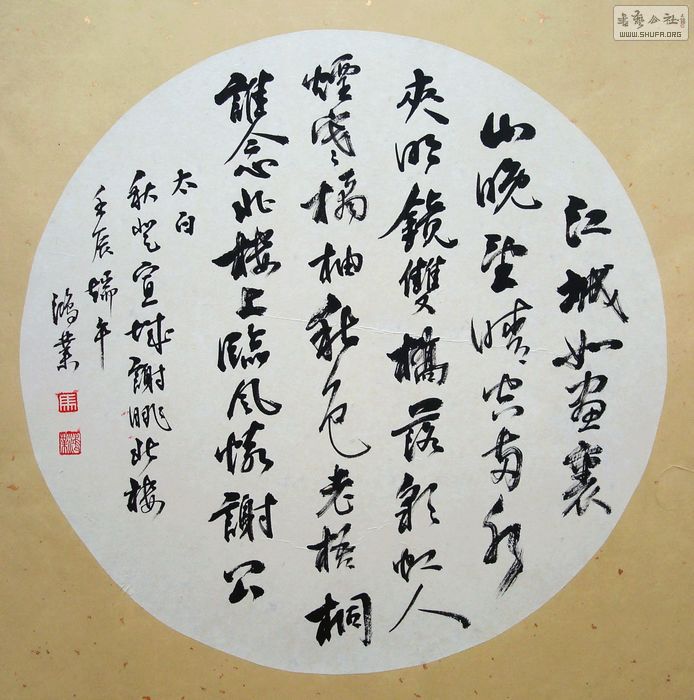 江城如畫裏
山晚望晴空兩水
夾明鏡雙橋落彩虹人
煙寒橘柚秋色老梧桐
誰念北樓上臨風懷謝公
太白
秋登宣城謝朓北樓
壬辰端午
鴻業
馬
WWW.SHUFA.ORG